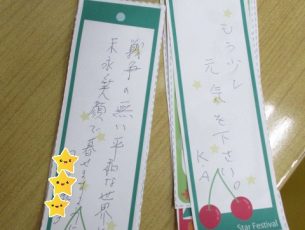 もう少し
元気を下さい。
K A
Star Festival
戦争の無い平和な世界
末永笑顔で暮せます